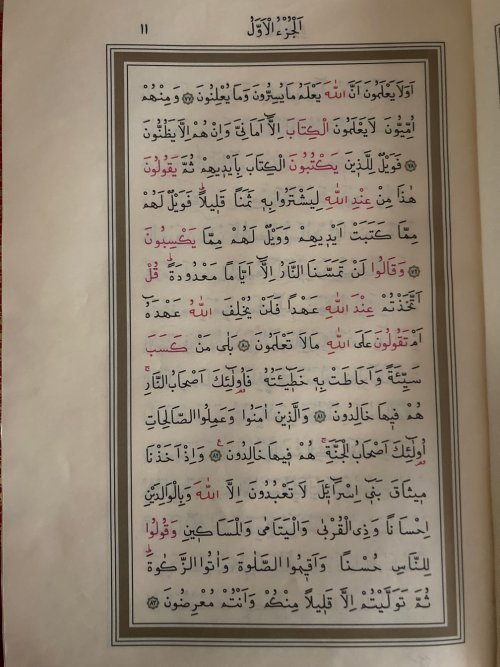 اَلْجُزْءُ الْاَوَّلُ
١١
اَوَلَا يَعْلَمُونَ اَنَّ اللّٰهَ يَعْلَمُ مَا يُسِرُّونَ وَمَا يُعْلِنُونَ ﴿٧٧﴾ وَمِنْهُمْ
اُمِّيُّونَ لَا يَعْلَمُونَ الْكِتَابَ اِلَّٓا اَمَانِيَّ وَاِنْ هُمْ اِلَّا يَظُنُّونَ
﴿٧٨﴾ فَوَيْلٌ لِلَّذ۪ينَ يَكْتُبُونَ الْكِتَابَ بِاَيْد۪يهِمْ ثُمَّ يَقُولُونَ
هٰذَا مِنْ عِنْدِ اللّٰهِ لِيَشْتَرُوا بِه۪ ثَمَنًا قَل۪يلًاۜ فَوَيْلٌ لَهُمْ
مِمَّا كَتَبَتْ اَيْد۪يهِمْ وَوَيْلٌ لَهُمْ مِمَّا يَكْسِبُونَ
﴿٧٩﴾ وَقَالُوا لَنْ تَمَسَّنَا النَّارُ اِلَّٓا اَيَّامًا مَعْدُودَةًۜ قُلْ
اَتَّخَذْتُمْ عِنْدَ اللّٰهِ عَهْدًا فَلَنْ يُخْلِفَ اللّٰهُ عَهْدَهُٓ
اَمْ تَقُولُونَ عَلَى اللّٰهِ مَا لَا تَعْلَمُونَ ﴿٨٠﴾ بَلٰى مَنْ كَسَبَ
سَيِّئَةً وَاَحَاطَتْ بِه۪ خَط۪ٓيـَٔتُهُ فَاُو۬لٰٓئِكَ اَصْحَابُ النَّارِۚ
هُمْ ف۪يهَا خَالِدُونَ ﴿٨١﴾ وَالَّذ۪ينَ اٰمَنُوا وَعَمِلُوا الصَّالِحَاتِ
اُو۬لٰٓئِكَ اَصْحَابُ الْجَنَّةِۚ هُمْ ف۪يهَا خَالِدُونَ ﴿٨٢﴾ وَاِذْ اَخَذْنَا
م۪يثَاقَ بَن۪ٓي اِسْرَٓائ۪لَ لَا تَعْبُدُونَ اِلَّا اللّٰهَ وَبِالْوَالِدَيْنِ
اِحْسَانًا وَذِي الْقُرْبٰى وَالْيَتَامٰى وَالْمَسَاك۪ينِ وَقُولُوا
لِلنَّاسِ حُسْنًا وَاَق۪يمُوا الصَّلٰوةَ وَاٰتُوا الزَّكٰوةَۜ
ثُمَّ تَوَلَّيْتُمْ اِلَّا قَل۪يلًا مِنْكُمْ وَاَنْتُمْ مُعْرِضُونَ ﴿٨٣﴾